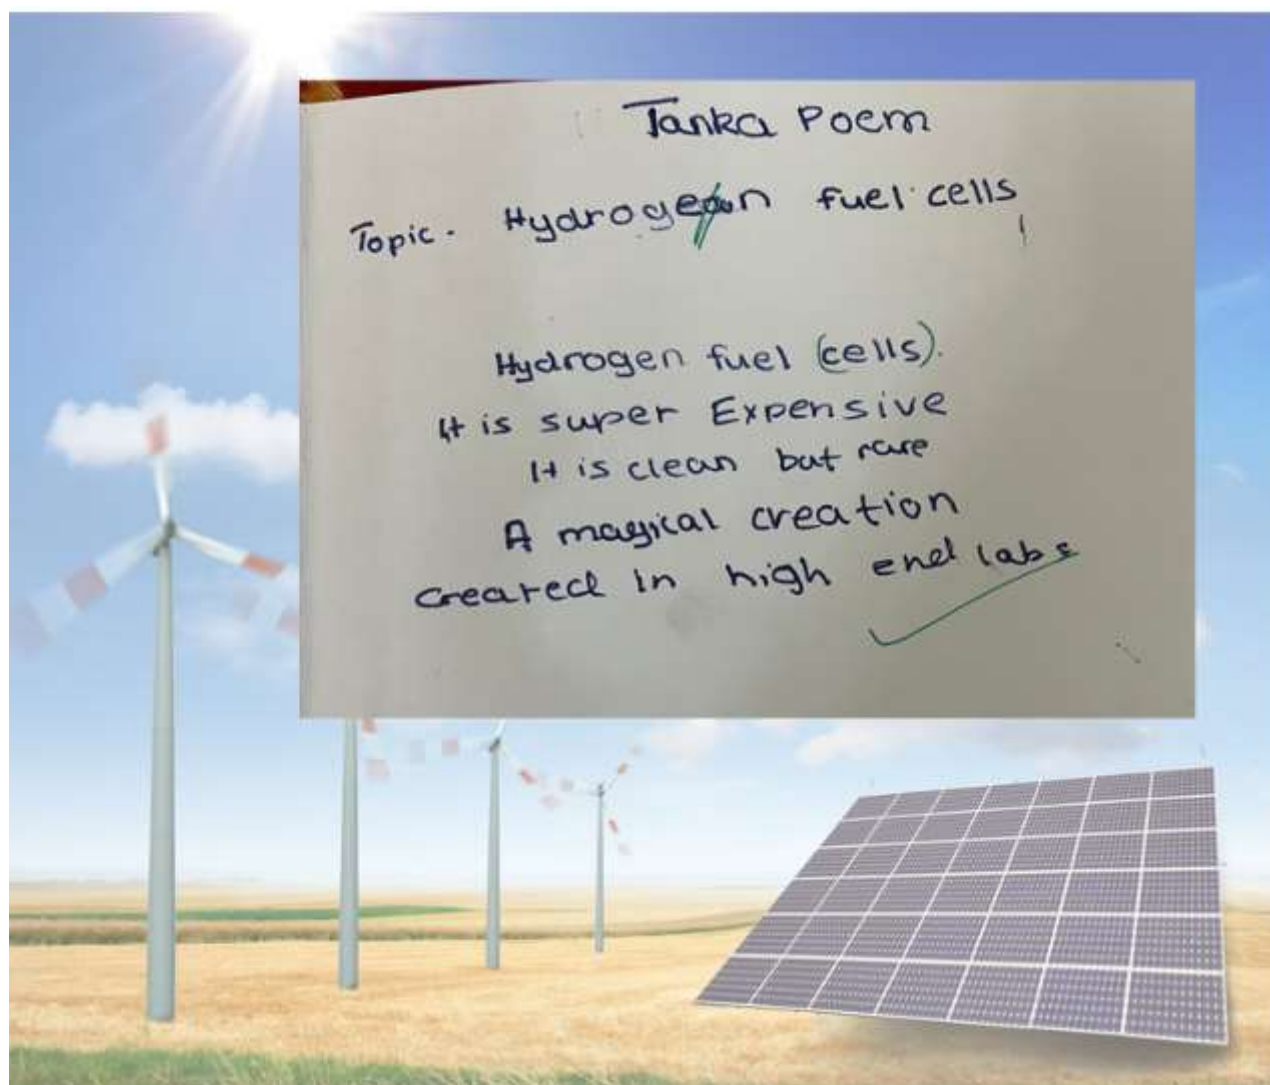 Tanka Poem
Topic. Hydrogen fuel cells
Hydrogen fuel (cells).
It is super Expensive
It is clean but rare
A magical creation
created in high end labs